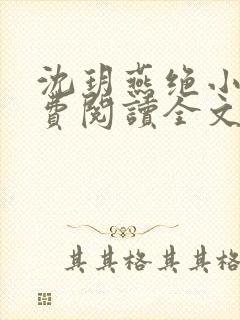 沈玥燕绝小
費閱讀全文
其其格其其格